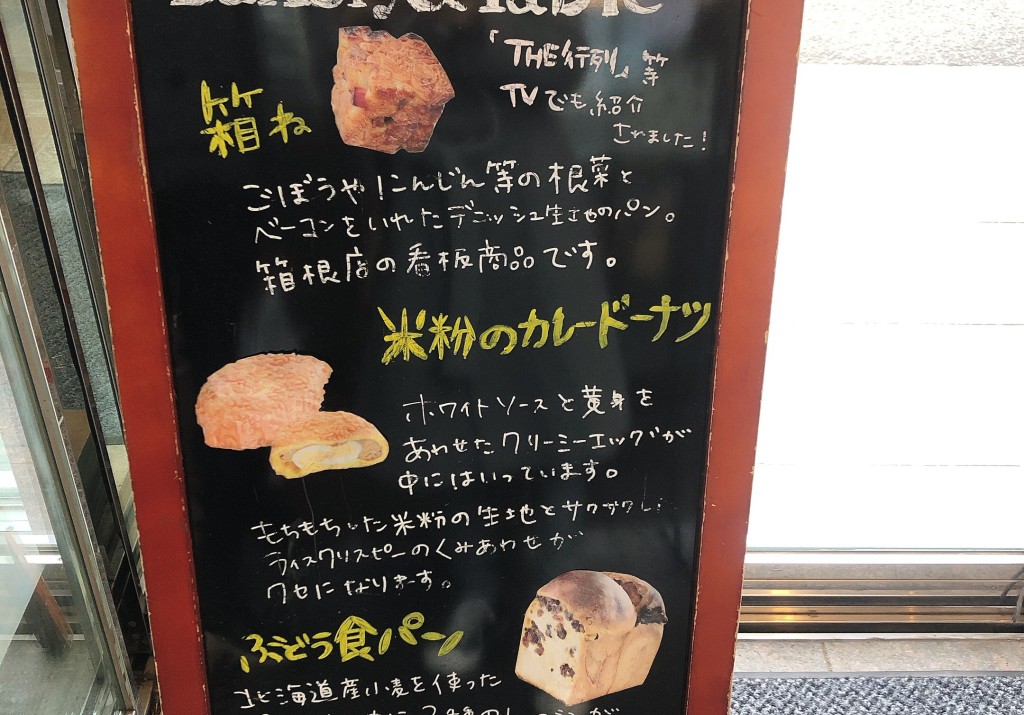 Bakery & Table
「THE行列」等
TVでも紹介
されました!
箱ね
ごぼうやにんじん等の根菜と
ベーコンをいれたデニッシュ生地のパン。
箱根店の看板商品です。
米粉のカレードーナツ
ホワイトソースと黄身を
あわせたクリーミーエッグが
中にはいっています。
もちもちした米粉の生地とサクサクし
ライスクリスピーのくみあわせが
クセになります。
ぶどう食パン
北海道産小麦を使った